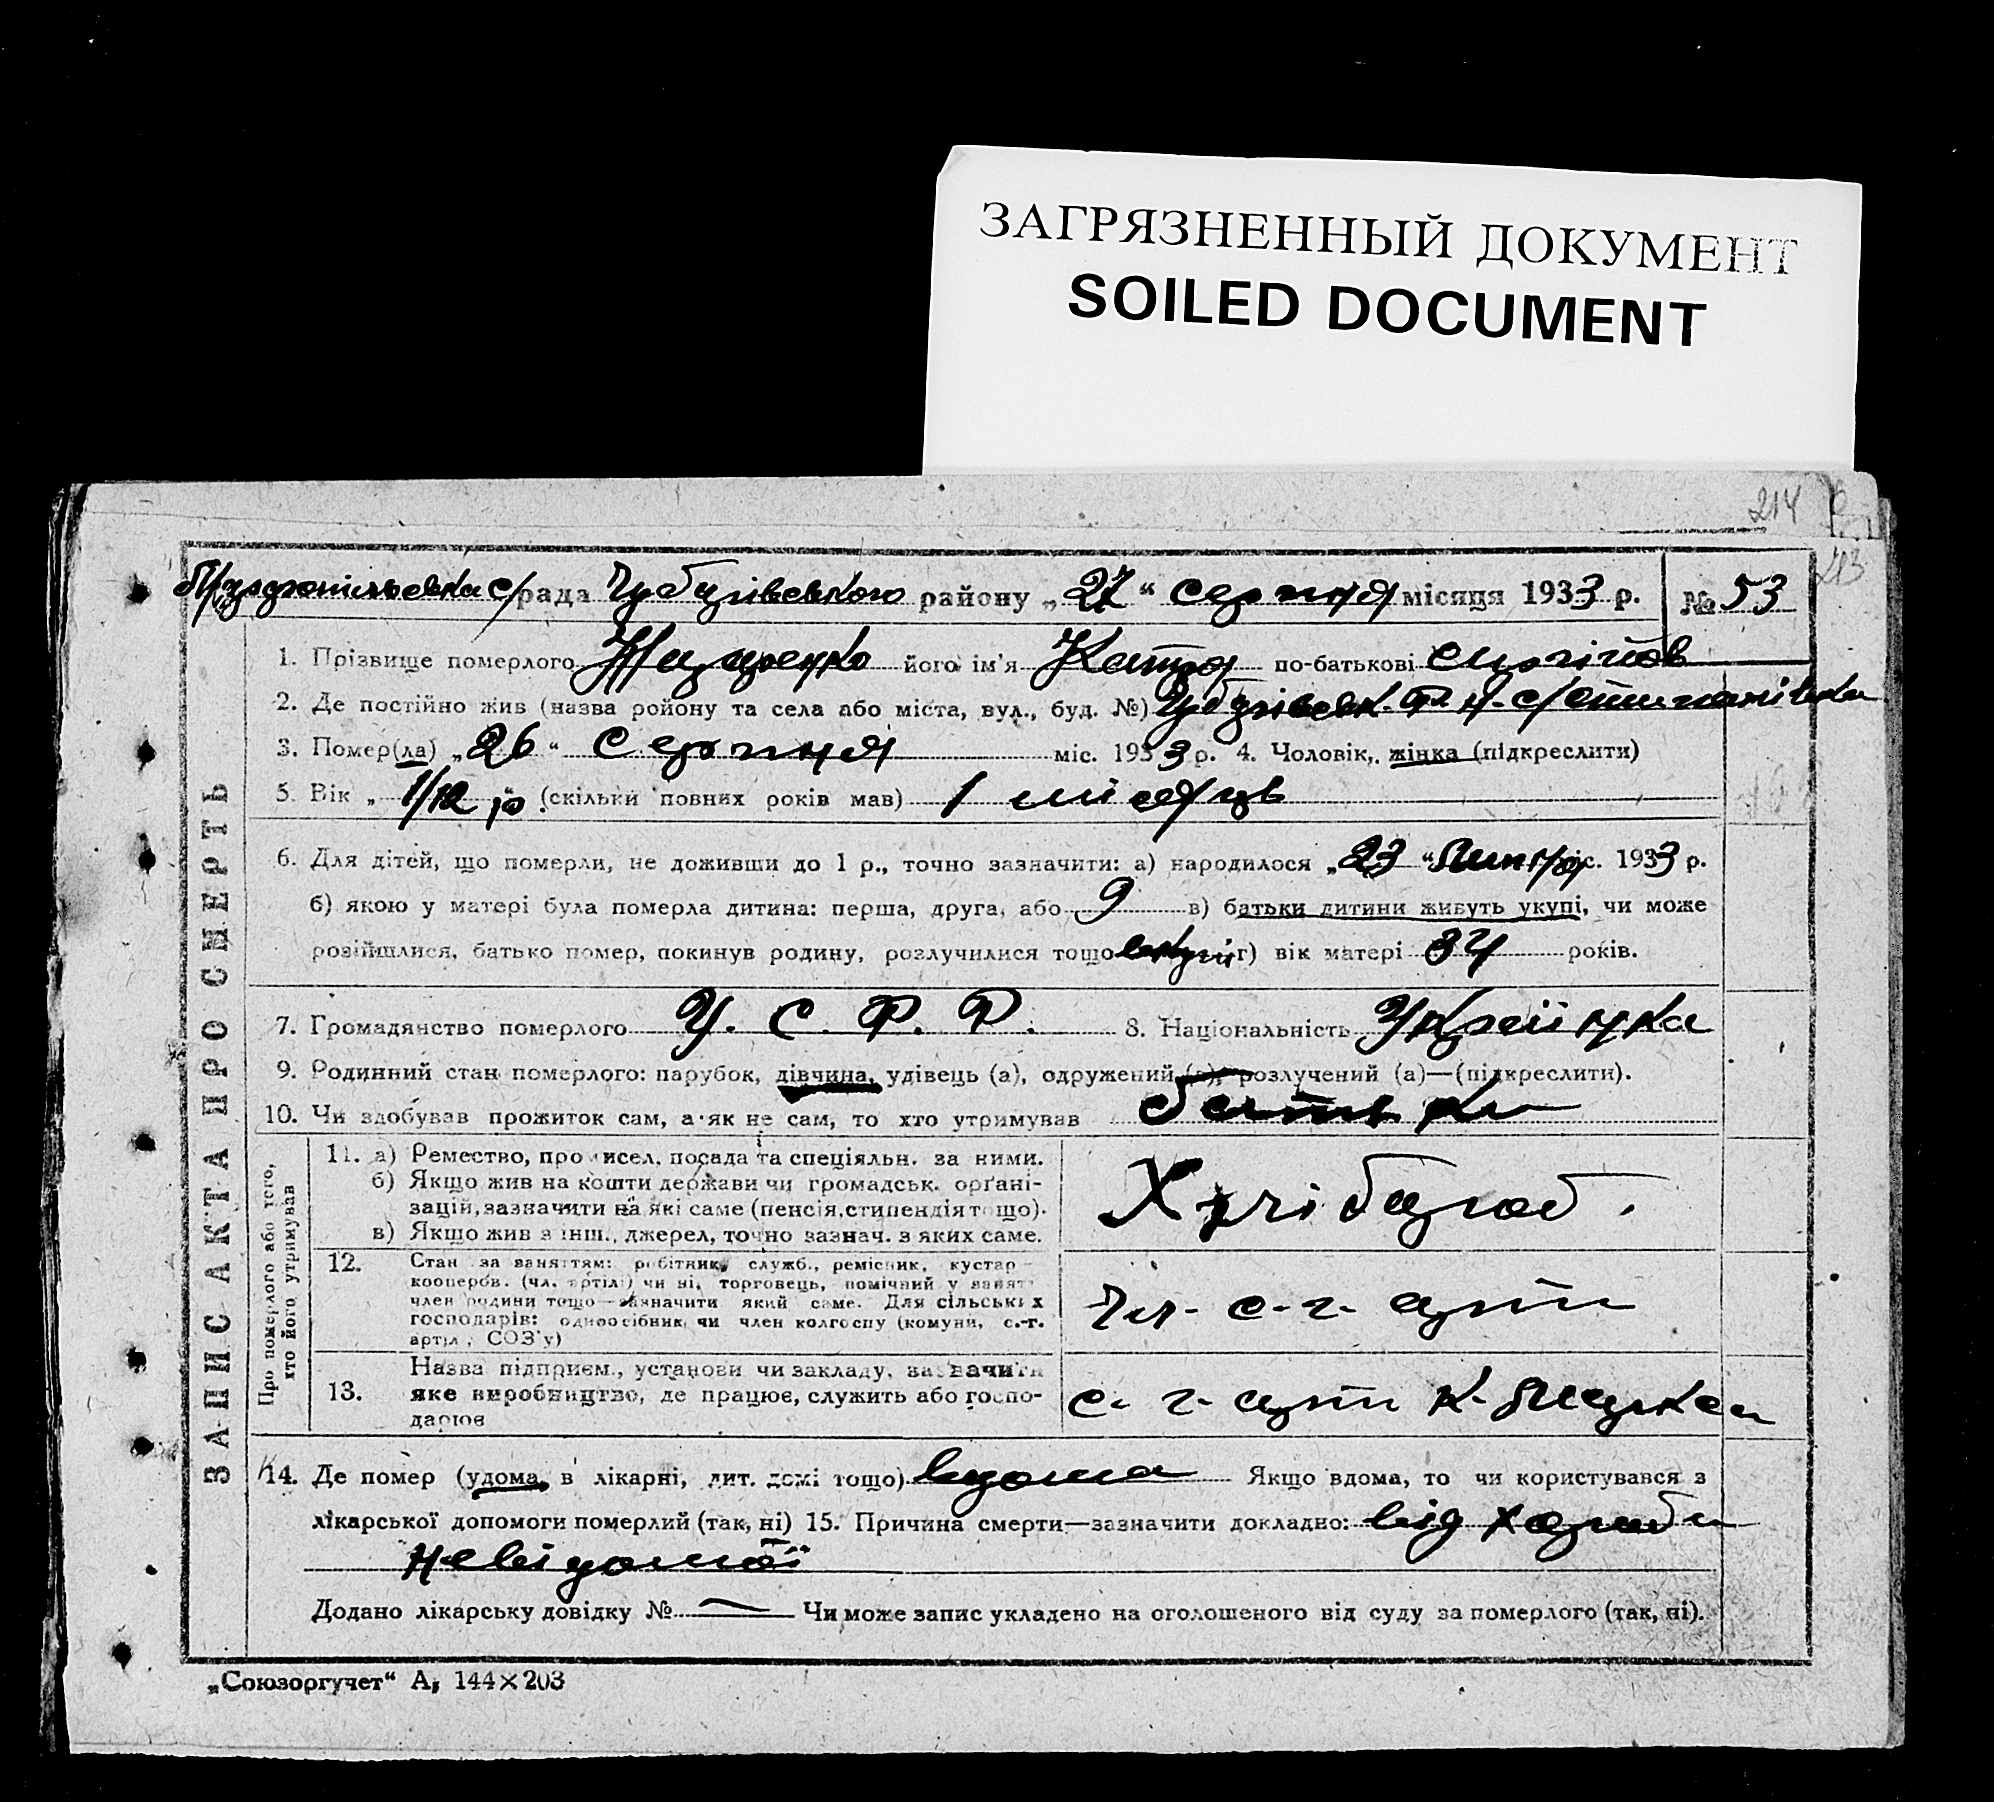 ЗАГРЯЗНЕННЫЙ ДОКУМЕНТ
SOILED DOCUMENT
214
213
с/рада Чубарівського району „27“ серпня місяця 1933 р. № 53
1. Прізвище померлого його ім'я Катря по-батькові
2. Де постійно жив (назва ройону та села або міста, вул., буд. №)
3. Помер(ла) „26“ Серпня міс. 1933 р. 4. Чоловік, жінка (підкреслити)
5. Вік „1/12 р. (скільки повних років мав) 1 місяць
6. Для дітей, що померли, не доживши до 1 р., точно зазначити: а) народилося „23“ Липня міс. 1933 р.
б) якою у матері була померла дитина: перша, друга, або 9 в) батьки дитини живуть укупі, чи може
розійшлися, батько помер, покинув родину, розлучилися тощо вкупі г) вік матері 34 років.
7. Громадянство померлого У. С. Р. Р. 8. Національність Українка
9. Родинний стан померлого: парубок, дівчина, удівець (а), одружений (а), розлучений (а)—(підкреслити).
10. Чи здобував прожиток сам, а як не сам, то хто утримував батьки
ЗАПИС АКТА ПРО СМЕРТЬ
Про померлого або того, хто його утримував
11. а) Ремество, про исел, посада та спеціяльн. за ними.
б) Якщо жив на кошти держави чи громадськ. орґані-
зацій, зазначити на які саме (пенсія, стипендія тощо).
в) Якщо жив з інш., джерел, точно зазнач. з яких саме.
Хлібороб.
12. Стан за заняттям: робітник, служб., ремісник, кустар
кооперов. (чл. артілі) чи ні, торговець, помічний у занят
член родини тощо—зазначити який саме. Для сільських
господарів: одноосібник чи член колгоспу (комуни, с.-г.
артіл, СОЗ'у)
Чл. с.-г. арті
13. Назва підприєм., установи чи закладу, зазначити
яке виробництво, де працює, служить або госпо-
дарює
с. г. арті К.
14. Де помер (удома, в лікарні, пит. домі тощо) вдома Якщо вдома, то чи користувався з
лікарської допомоги померлий (так, ні) 15. Причина смерти—зазначити докладно: від хороби
невідомої
Додано лікарську довідку № — Чи може запис укладено на оголошеного від суду за померлого (так, ні).
„Союзоргучет“ А, 144×203